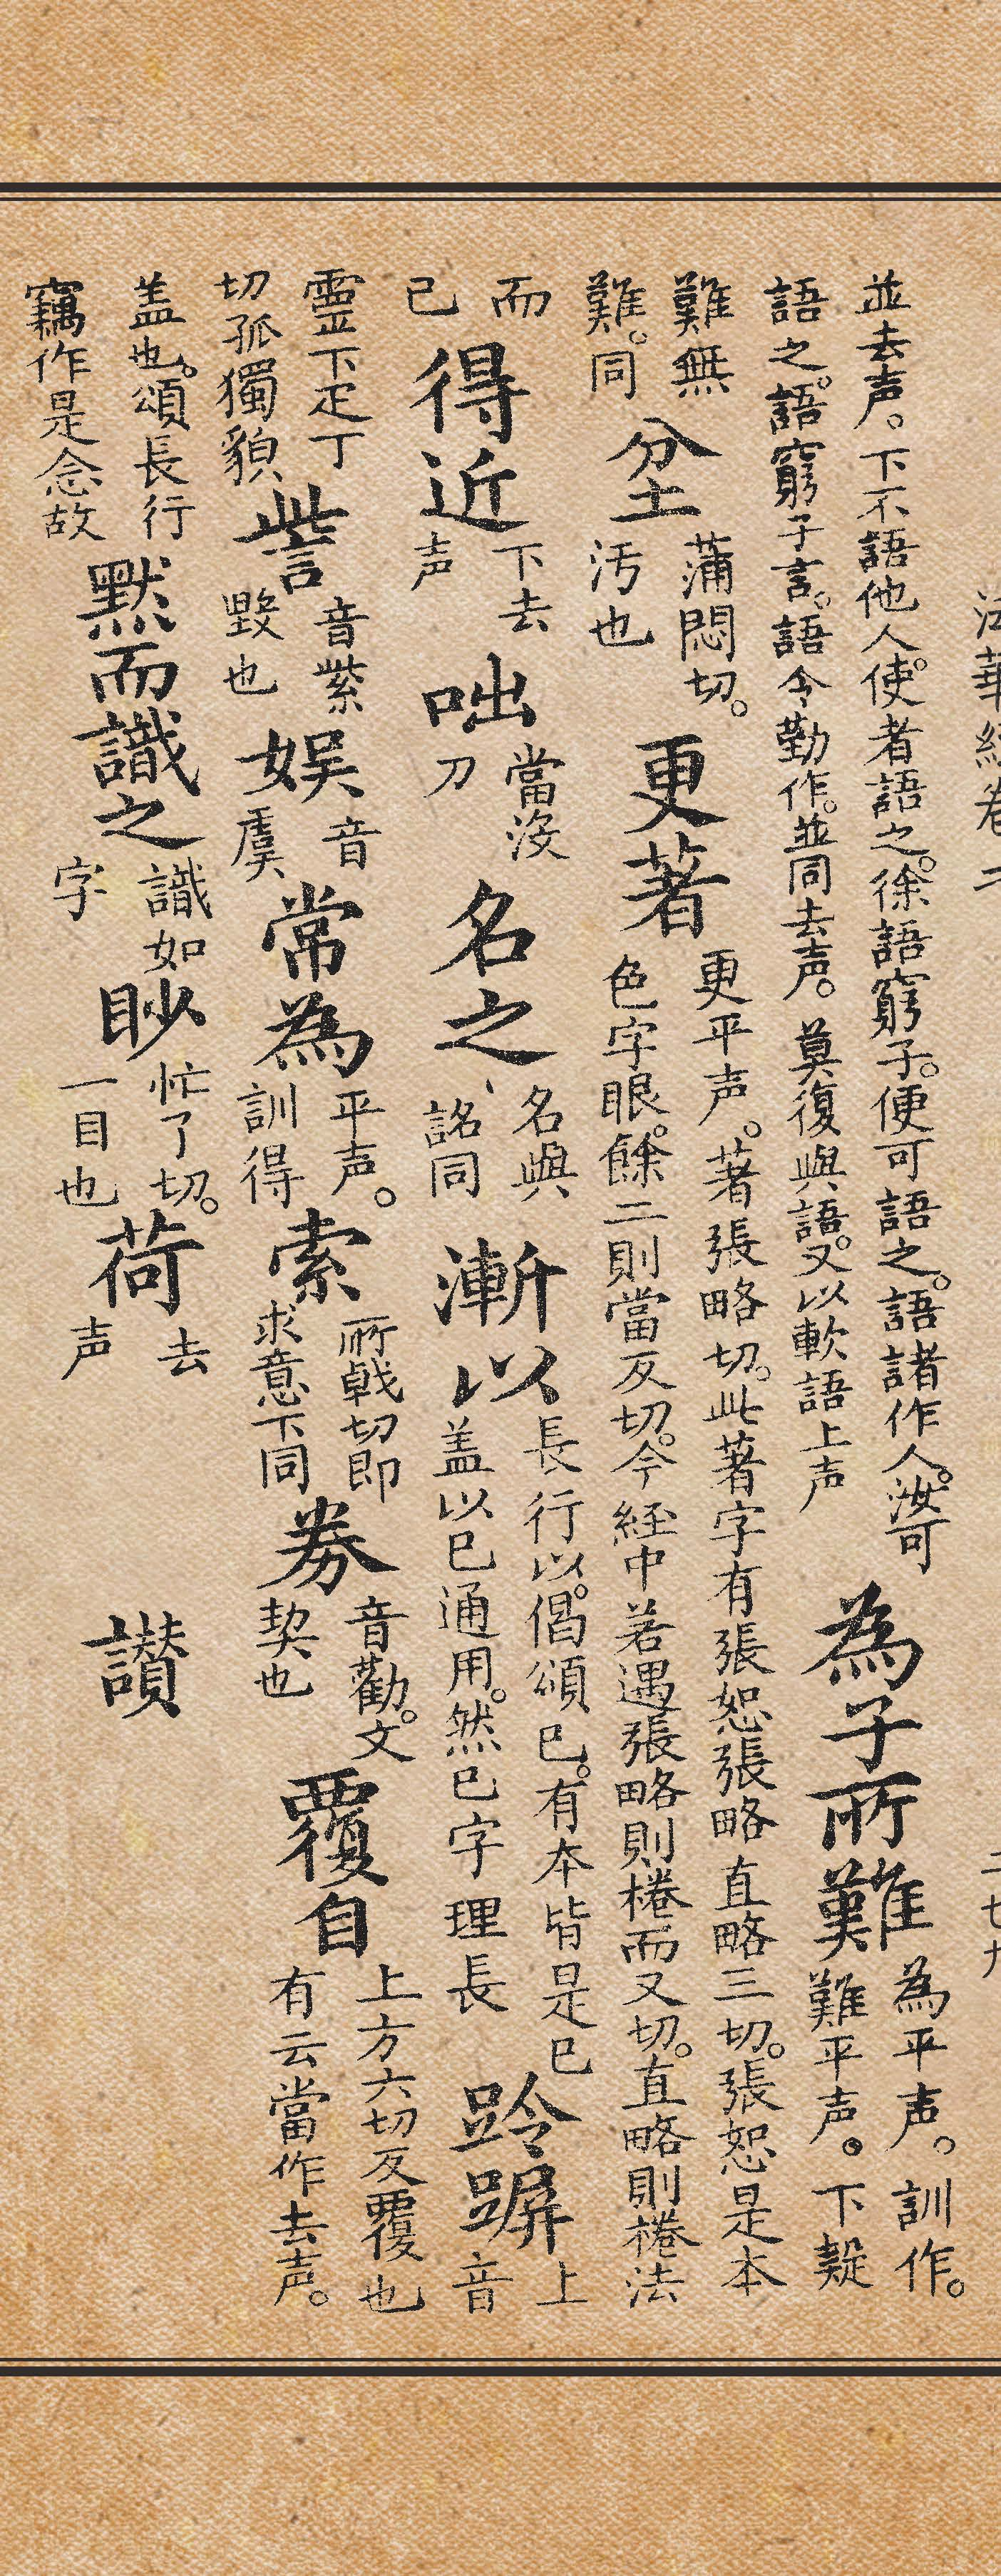 法華經卷二 二七九
並去声。下不語他人使。者語之。徐語窮子。便可語之。語諸作人。汝可語之。語窮子言。語令勤作。並同去声。莫復與語。又以軟語上声 為子所難 為平声。訓作。難平声。下疑
難無難。同 坌 蒲悶切。汚也 更著 更平声。著張略切。此著字有張恕張略直略三切。張恕是本色字眼。餘二則當反切。今経中若遇張略則棬而又切。直略則棬法
而已 得近 下去声 咄 當沒刀 名之 名與詺同 漸以 長行以。偈頌已。有本皆是已盖以已通用。然已字理長 跉跰 上音
靈下疋丁切孤獨貌 訾 音紫毀也 娯 音虞 常為 平声。訓得 索 所戟切即求意下同 券 音勸。文契也 覆自 上方六切反覆也有云當作去声。
盖也。頌長行竊作是念故 默而識之 識如字 眇 忙了切。一目也 荷 去声 讃